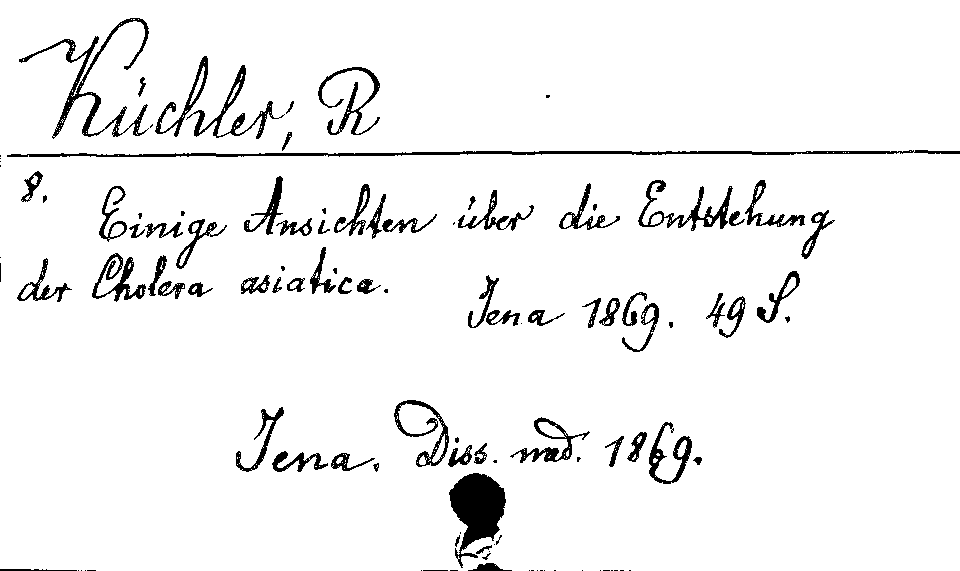 Küchler, R
8.
Einige Ansichten über die Entstehung
der Cholera asiatica.
Jena 1869. 49 S.
Jena. Diss. med. 1869.